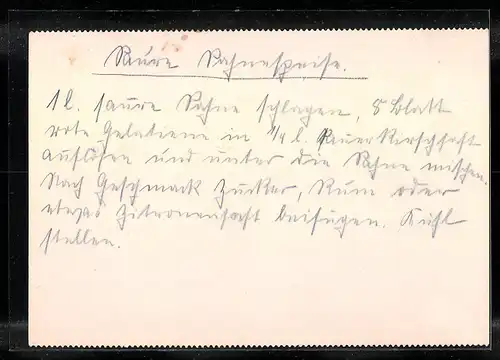 Saure Sahnespeise.
1 l. saure Sahne schlagen, 8 Blatt
rote Gelatiene in 1/4 l. Sauerkirschsaft
auflösen und unter die Sahne mischen.
Nach Geschmack Zucker, Rum oder
etwas Zitronensaft beifügen. Kühl
stellen.